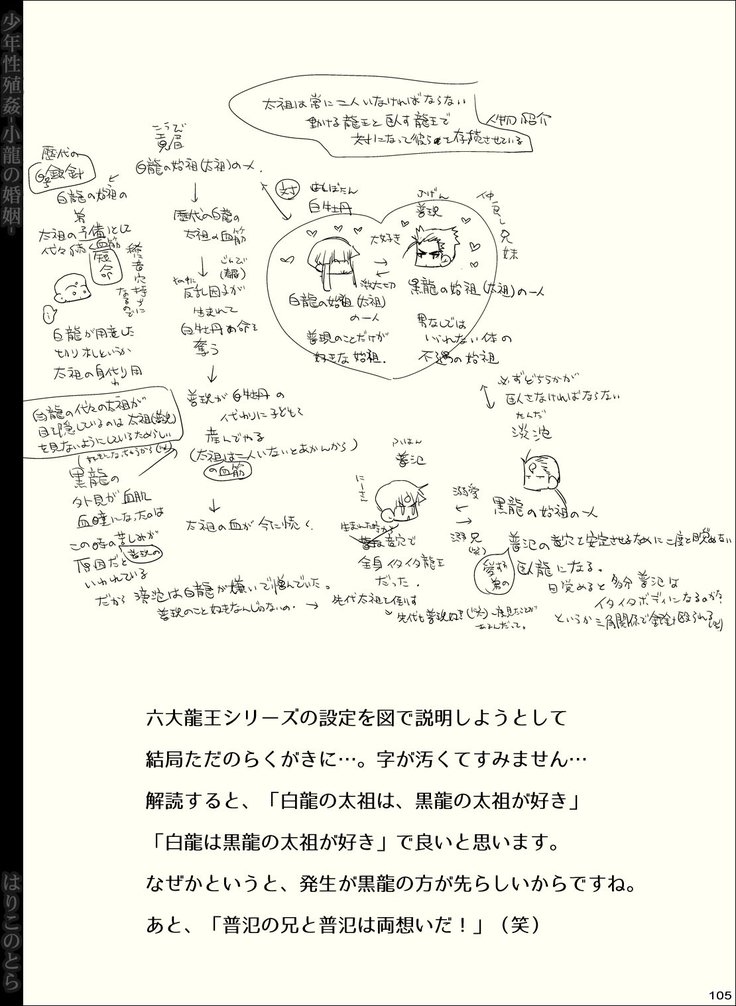 少年性殖姦-小龍の婚姻-
はりこのとら
太祖は常に二人いなければならない
動ける龍王と臥す龍王で
対になって彼らを存続させている
人物紹介
歴代の
白龍の始祖の
弟
太祖の予備として
代々続く血筋
短命
白龍が用意した
切り札というか
太祖の身代り用
白龍の代々の太祖が
目を隠しているのは太祖
を見ないようにしているためらしい
黒龍の
外見が血肌
血瞳になったのは
この時の苦しみが
原因だと
いわれている
白龍の始祖(太祖)の一人
歴代の白龍の
太祖の血筋
反乱因子が
生まれて
白牡丹の命を
奪う
普現が白牡丹の
代わりに子ども
産んでやる
(太祖は二人いないとあかんから)
の血筋
太祖の血が今に続く
対
はくぼたん
白牡丹
大好き
ふげん
普現
仲良し兄妹
白龍の始祖(太祖)
の一人
普現のことだけが
好きな始祖.
黒龍の始祖(太祖)の一人
男なしでは
いられない体の
不遇の始祖
※どちらかが
臥さなければならない
たんだ
淡沲
黒龍の始祖の一人
ふはん
普氾
にーさん
溺愛
溺兄
全身イタイタ龍王
だった.
普氾の竜穴を安定させるために二度と目覚めない
臥龍になる。
目覚めると多分普氾は
イタイタボディになるのか?
というか三角関係で
だから淡沲は白龍が嫌いで憎んでいた。
普現のこと好きなんじゃないの.
→ 先代太祖を倒す
六大龍王シリーズの設定を図で説明しようとして
結局ただのらくがきに…。字が汚くてすみません…
解読すると、「白龍の太祖は、黒龍の太祖が好き」
「白龍は黒龍の太祖が好き」で良いと思います。
なぜかというと、発生が黒龍の方が先らしいからですね。
あと、「普氾の兄と普氾は両想いだ！」（笑）
105